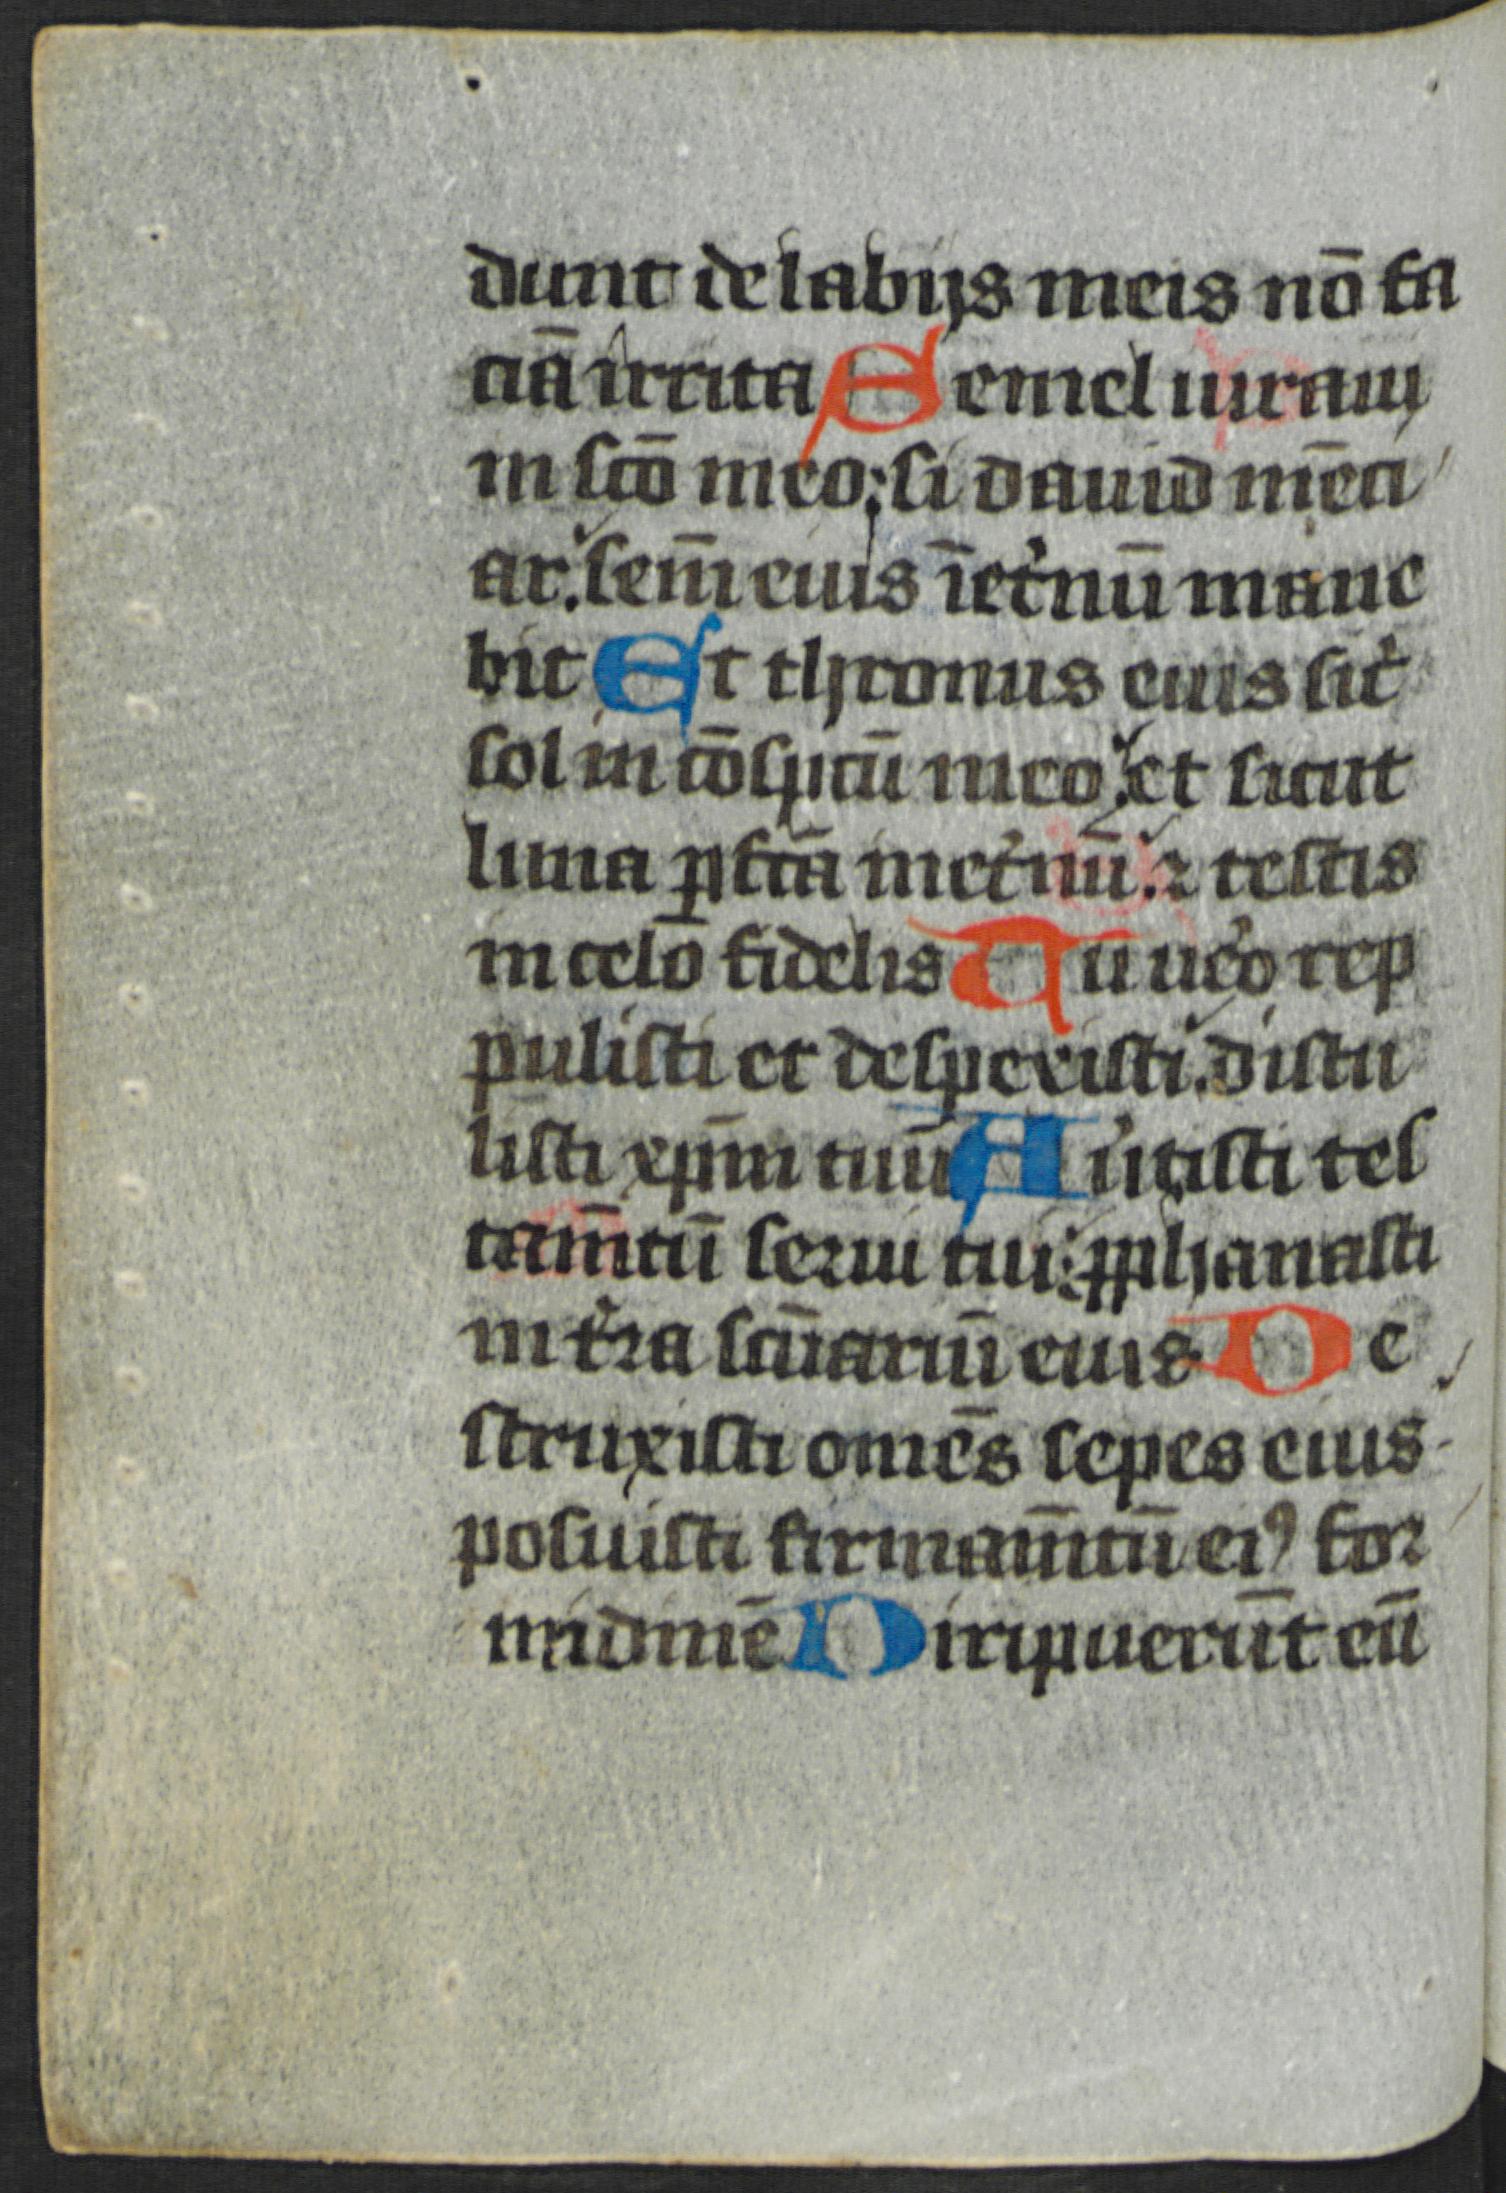 dunt de labijs meis nō fa
ciā irrita Semel iuraui
in scō meo: si dauid mēci
ar. sem̄ eius īet'nū mane
bit Et thronus eius sic̾
sol in cōspcū meo. et sicut
luna ꝑfcā in et'nū. ꝛ testis
in celo fidelis Tu ue̾o rep
pulisti et despexisti. distu
listi xp̄m tuū Au̾tisti tes
tam̄tū serui tui: ꝓphanasti
in t̾ra scūariū eius De
struxisti omēs sepes eius
posuisti firmam̄tū eiꝰ for
midinē Diripuerūt eū